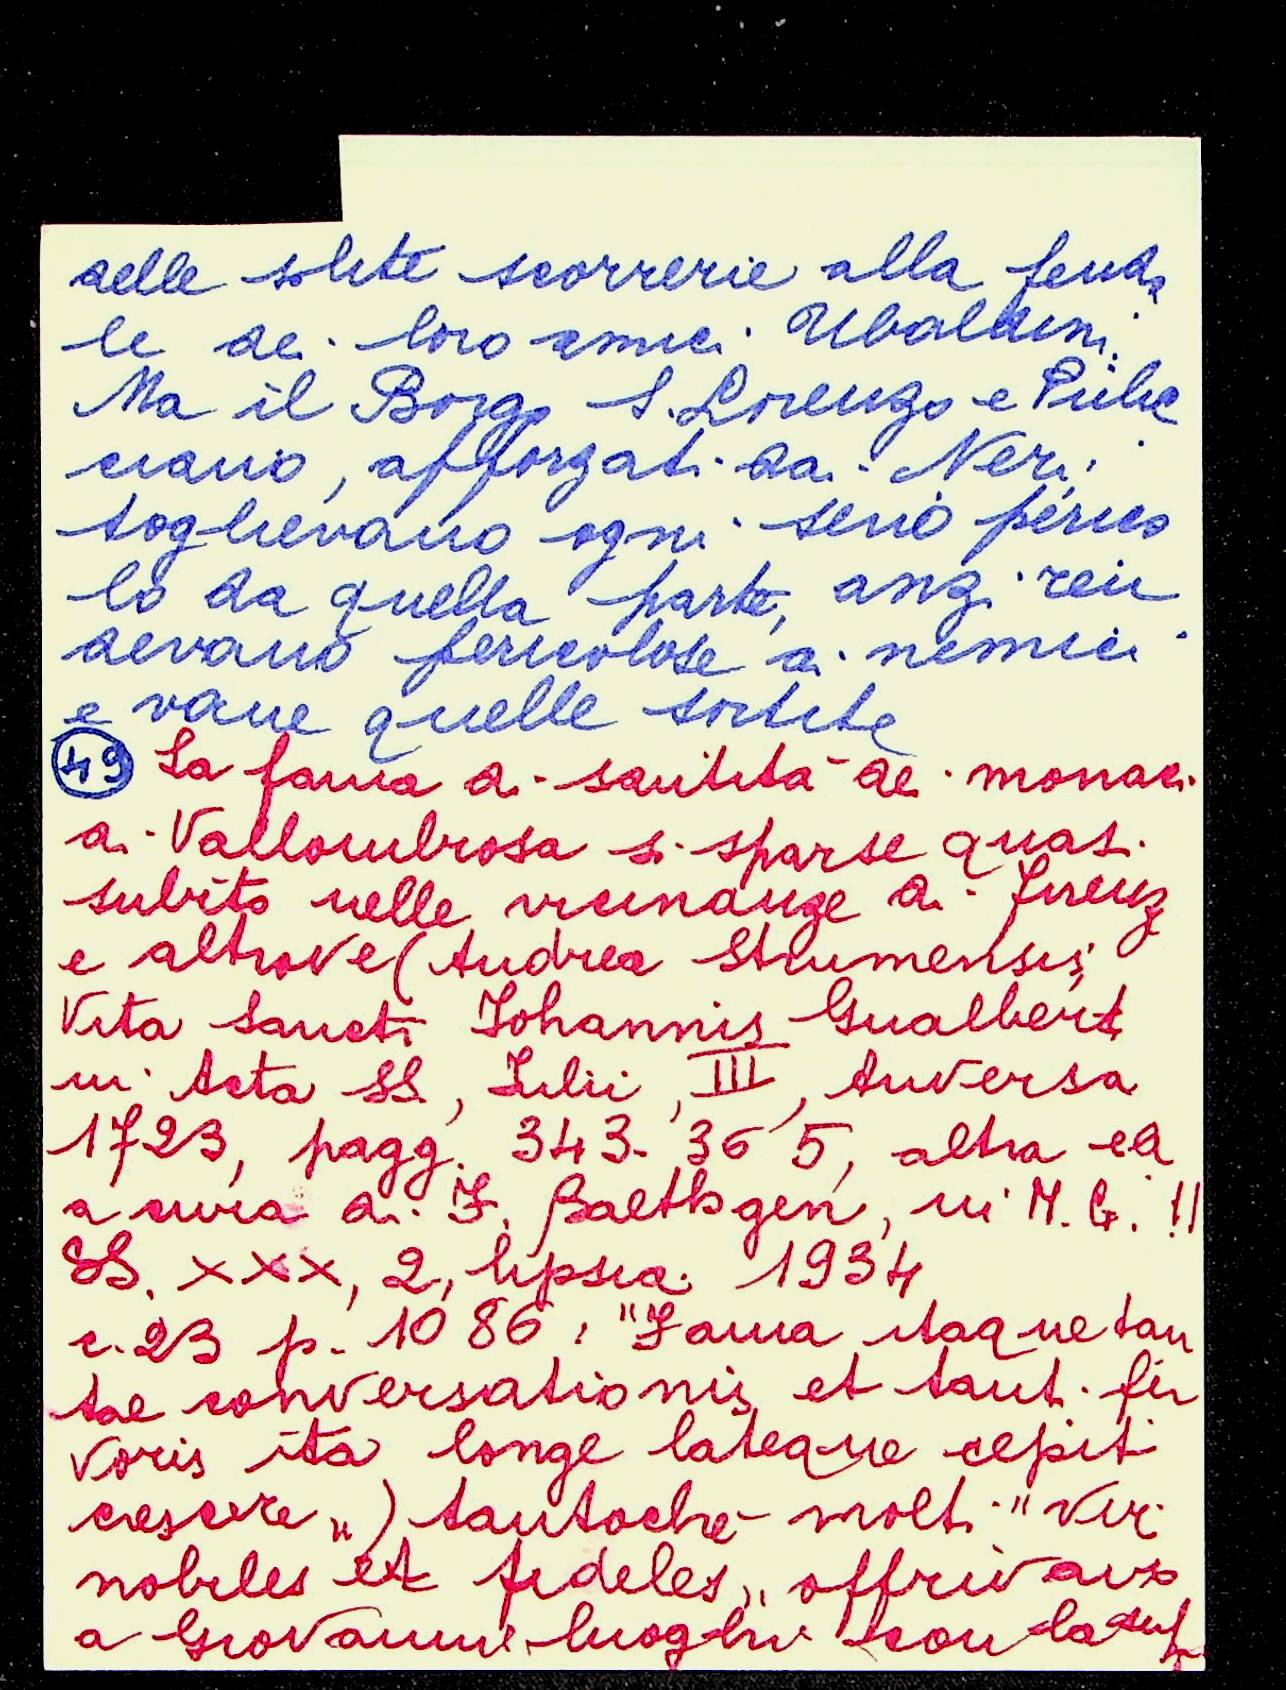 delle solite scorrerie alla feuda
le dei loro amici Ubaldini.
Ma il Borgo S. Lorenzo e Pulic
ciano, afforzati dai Neri,
toglievano ogni serio perico
lo da quella parte, anzi ren
devano pericolose ai nemici
e vane quelle sortite
49 La fama di santità dei monaci
di Vallombrosa si sparse quasi
subito nelle vicinanze di Firenz
e altrove (Andrea Strumensis,
Vita Sancti Johannis Gualberti
in Acta SS, Iulii, III, Anversa
1723, pagg. 343-365, altra ed
a cura di F. Baethgen, in M. G. H
SS. XXX, 2, Lipsia 1934
c. 23 p. 1086: "Fama itaque tan
tae conversationis et tanti fer
voris ita longe lateque cepit
crescere") tantoché molti "viri
nobiles et fideles" offrivano
a Giovanni luoghi con la